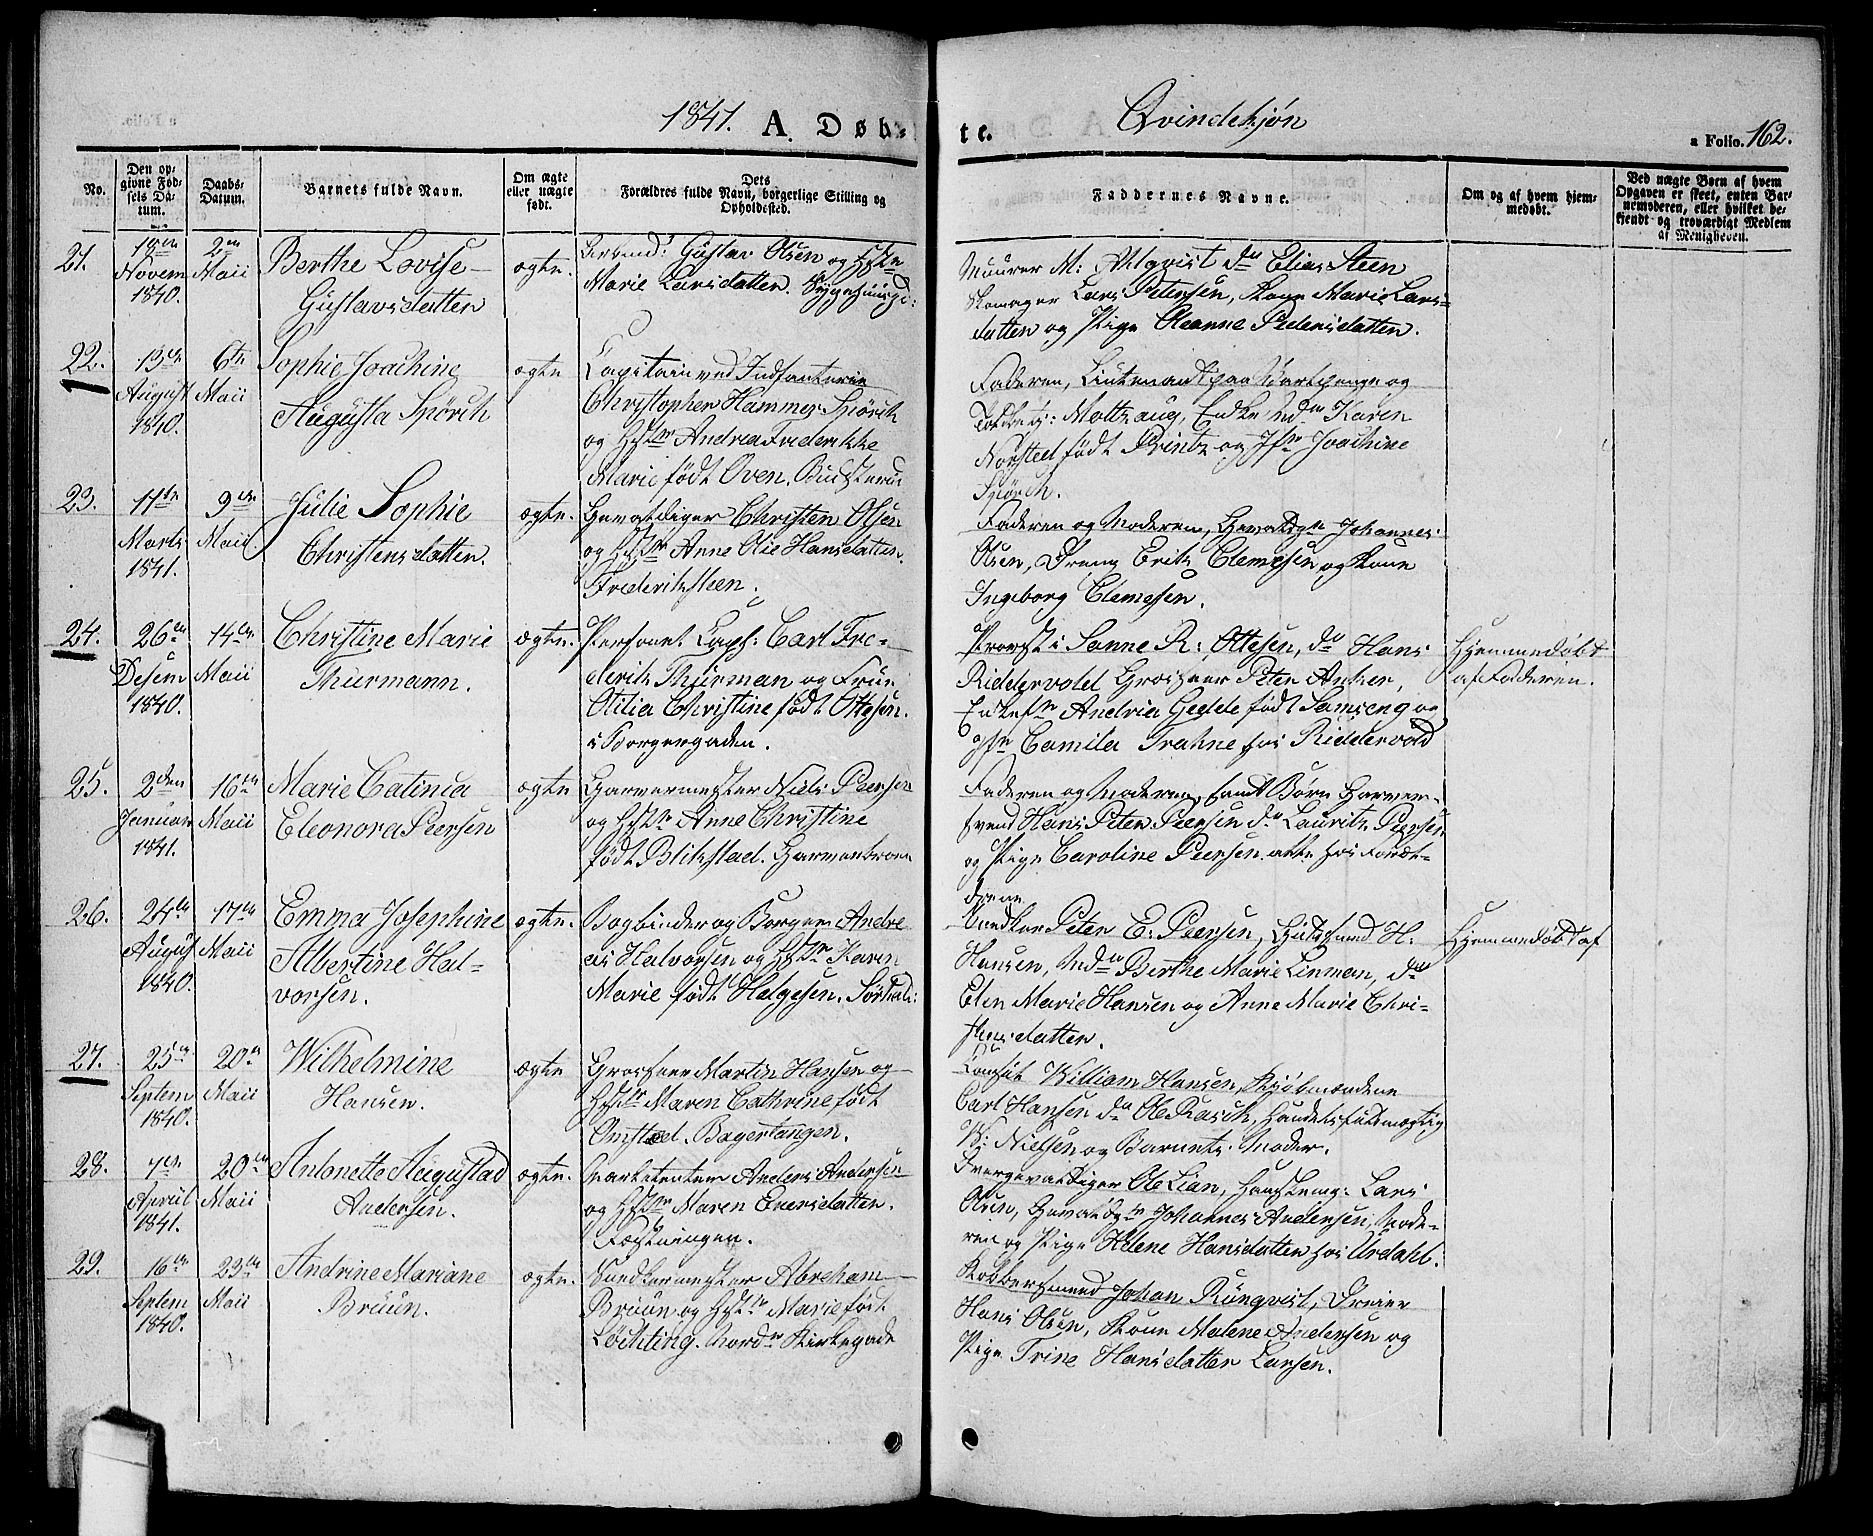 1841. A. Døb-
te. Qvindekjøn
a Folio. 162.
No.
Den opgivne Fødsels Datum.
Daabs-Datum.
Barnets fulde Navn.
Om ægte eller uægte født.
Dets Forældres fulde Navn, borgerlige Stilling og Opholdssted.
Faddernes Navne.
Om og af hvem hjemmedøbt.
Ved uægte Børn af hvem Opgaven er skeet, enten Barnemoderen, eller hvilket bekjendt og troværdigt Medlem af Menigheden.
21. 18en Novem 1840. 2en Maii
Berthe Lovise
Gustavsdatter
ægte.
Arbmd: Gustav Olsen og Hstr
Marie Larsdatter.
Muurer M: Almqvist do Elias Steen
Skomager Lars Petersen, Kone Marie Lars-
datter og Pige Oleanne Pedersdatter.
22. 13de August 1840. 6te Maii
Sophie Joachine
Augusta Spörck
ægte
Capitain ved Indfanterie
Christopher Hammer Spörck
og Hstr Andrea Frederikke
Marie født Oven.
Faderen, Lieutenant paa Vartpenge og
Mottzaug, Enke Mdm Karen
født Printz og Jfr Joachine
Spörck.
23. 11te Marts 1841. 9de Maii
Julie Sophie
Christensdatter.
ægte.
Gevaldiger Christen Olsen
og Hstr Anne Olie Hansdatter.
Frederiksteen.
Faderen og Moderen, Johannes
Olsen, Dreng Erik Clemesen og Kone
Ingeborg Clemesen.
24. 26de Desem 1840. 14de Maii
Christine Marie
Thurmann.
ægte.
Personel Cap: Carl Fre-
derik Thurman og Frue
Otilia Christine født Ottesen.
i Borgergaden.
Provst i Sanne R: Ottesen, do Hans
Riddervold Grosserer Peter Anker,
Enkefr Andria Gedde født Samseng og
Jfr Camila Trahne hos Riddervold
Hjemmedøbt
af Faderen.
25. 2den Januar 1841. 16de Maii
Marie Catinca
Eleonora Peersen
ægte
Garvermester Niels Peersen
og Hstr Anne Christine
født Blikstad.
Faderen og Moderen, samt Børn Garver-
svend Hans Peter Peersen do Lauritz Peersen
og Pige Caroline Peersen alle hos Foræl-
drene
26. 24de August 1840. 17de Maii
Emma Josephine
Albertine Hal-
vorsen.
ægte.
Bogbinder og Borger Andre
as Halvorsen og Hstr Karen
Marie født Helgesen.
Snedker Peter E: Peersen, H:
Hansen, Mdm Berthe Marie Linman, do
Elen Marie Hansen og Anne Marie Chri-
stensdatter.
Hjemmedøbt af
27. 25de Septem 1840. 20de Maii
Wilhelmine
Hansen.
ægte
Grosserer Martin Hansen og
Hstr Maren Cathrine født
Omsted. Bagertangen.
Consul William Hansen, Kjøbmændene
Carl Hansen do Ole Rasch, Handelsfuldmægtig
N: Nielsen og Barnets Moder.
28. 7de April 1841. 20de Maii
Antonette Augustad
Andersen.
ægte.
Marketenter Anders Andersen
og Hstr Maren Enersdatter.
Fæstningen.
Ole Lian, Lars
Olsen, Johannes Andersen, Mode-
ren og Pige Helene Hansdatter hos Urdahl.
29. 16de Septem 1840. 23de Maii
Andrine Mariane
Bruun.
ægte.
Snedkermester Abreham
Bruun og Hstr Marie født
Löchting. Nordre Kirkegade
Kobbersmed Johan Runqvist, Dreier
Hans Olsen, Kone Malene Andersen og
Pige Trine Hansdatter Larsen.